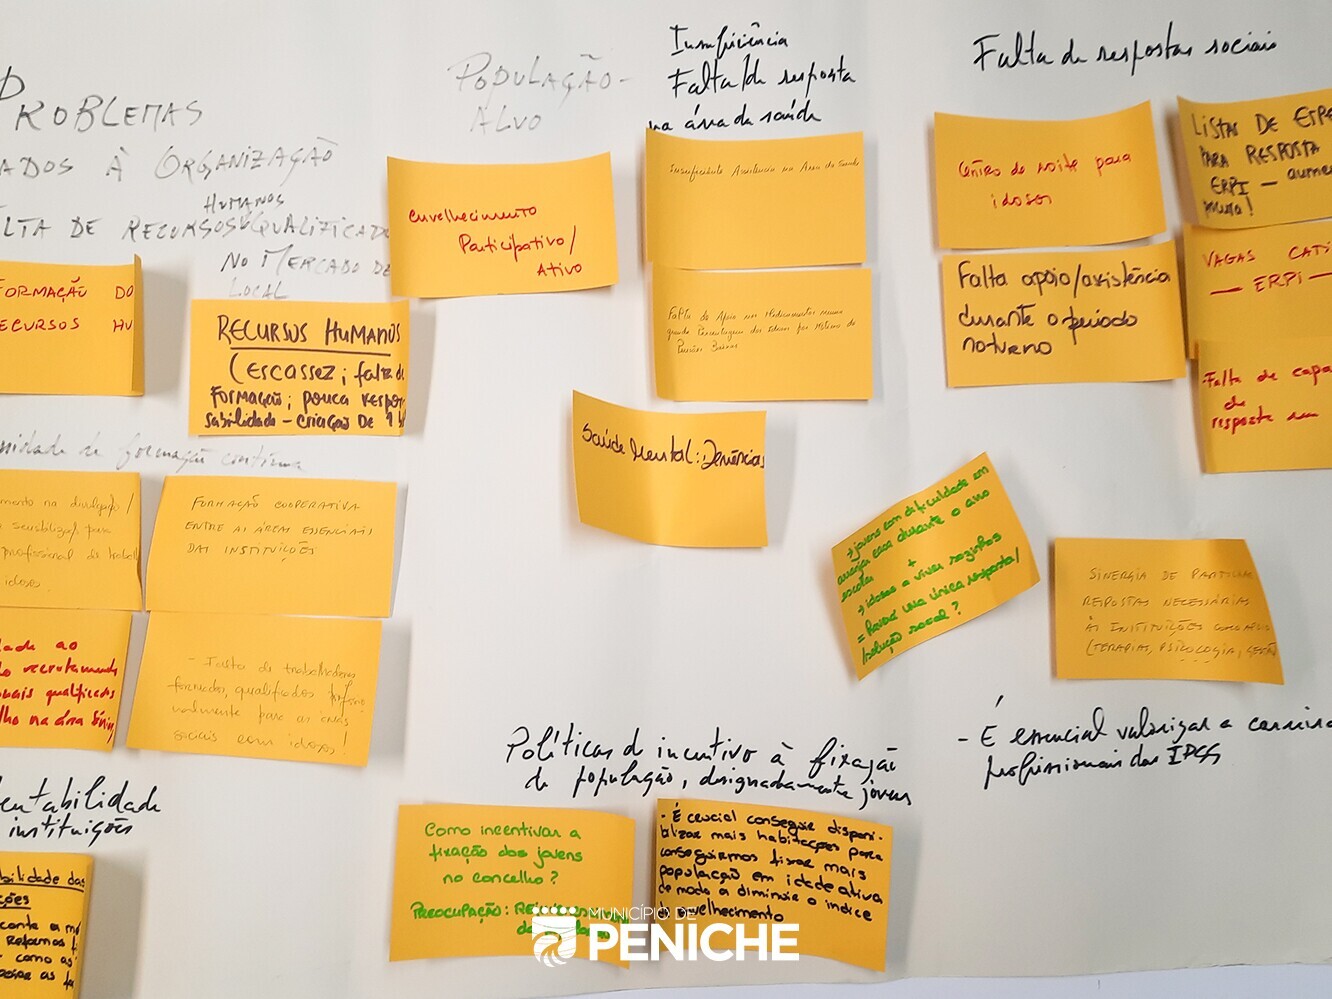 PROBLEMAS
ADOS À ORGANIZAÇÃO
HUMANOS
LTA DE RECURSOS QUALIFICADO
NO MERCADO DE
LOCAL
FORMAÇÃO DO
ECURSOS HU
RECURSOS HUMANOS
(ESCASSEZ; falta d
FORMAÇÃO; POUCA RESPON
SABILIDADE – CRIAÇÃO DE
de formação contínua
mento na divulgação/
sensibilizar para
profissional de trabalh
idosos.
FORMAÇÃO COOPERATIVA
ENTRE AS ÁREAS ESSENCIAIS
DAS INSTITUIÇÕES
dade ao
do recrutamento
onais qualificados
lho na área Sénior,
- Falta de trabalhadores
formados, qualificados profissio
nalmente para as áreas
sociais com idosos!
entabilidade
instituições
bilidade das
ções
conte a
Reformas
como as
POPULAÇÃO-
ALVO
envelhecimento
Participativo/
Ativo
Insuficiência
Falta/de resposta
na área da saúde
Insuficiente Assistência na Área da Saúde
Falta de Apoio nos Medicamentos numa
grande Percentagem dos Idosos por Motivos de
Pensões Baixas
Saúde Mental: Demências
Falta de respostas sociais
Centros de noite para
idosos
Falta apoio/assistência
durante o período
noturno
LISTAS DE ESPE
PARA RESPOSTA
ERPI – aumen
procura!
VAGAS CATI
— ERPI —
-Falta de capa
de
resposta em
→ jovens com dificuldade em
arranjar casa durante o ano
escolar
+
→ idosos a viver sozinhos
= Haverá uma única resposta/
/solução social?
SINERGIA DE PARTILHAR
RESPOSTAS NECESSÁRIAS
ÀS INSTITUIÇÕES COMO APOIO
(TERAPIAS, PSICOLOGIA, GESTÃO
- É essencial valorizar a carreira
profissionais das IPSS
Políticas de incentivo à fixação
de população, designadamente jovens
Como incentivar a
fixação dos jovens
no concelho?
PREOCUPAÇÃO:
- É crucial conseguir disponi-
bilizar mais habitações para
conseguirmos fixar mais
população em idade ativa
de modo a diminuir o índice
de envelhecimento
MUNICÍPIO DE
PENICHE